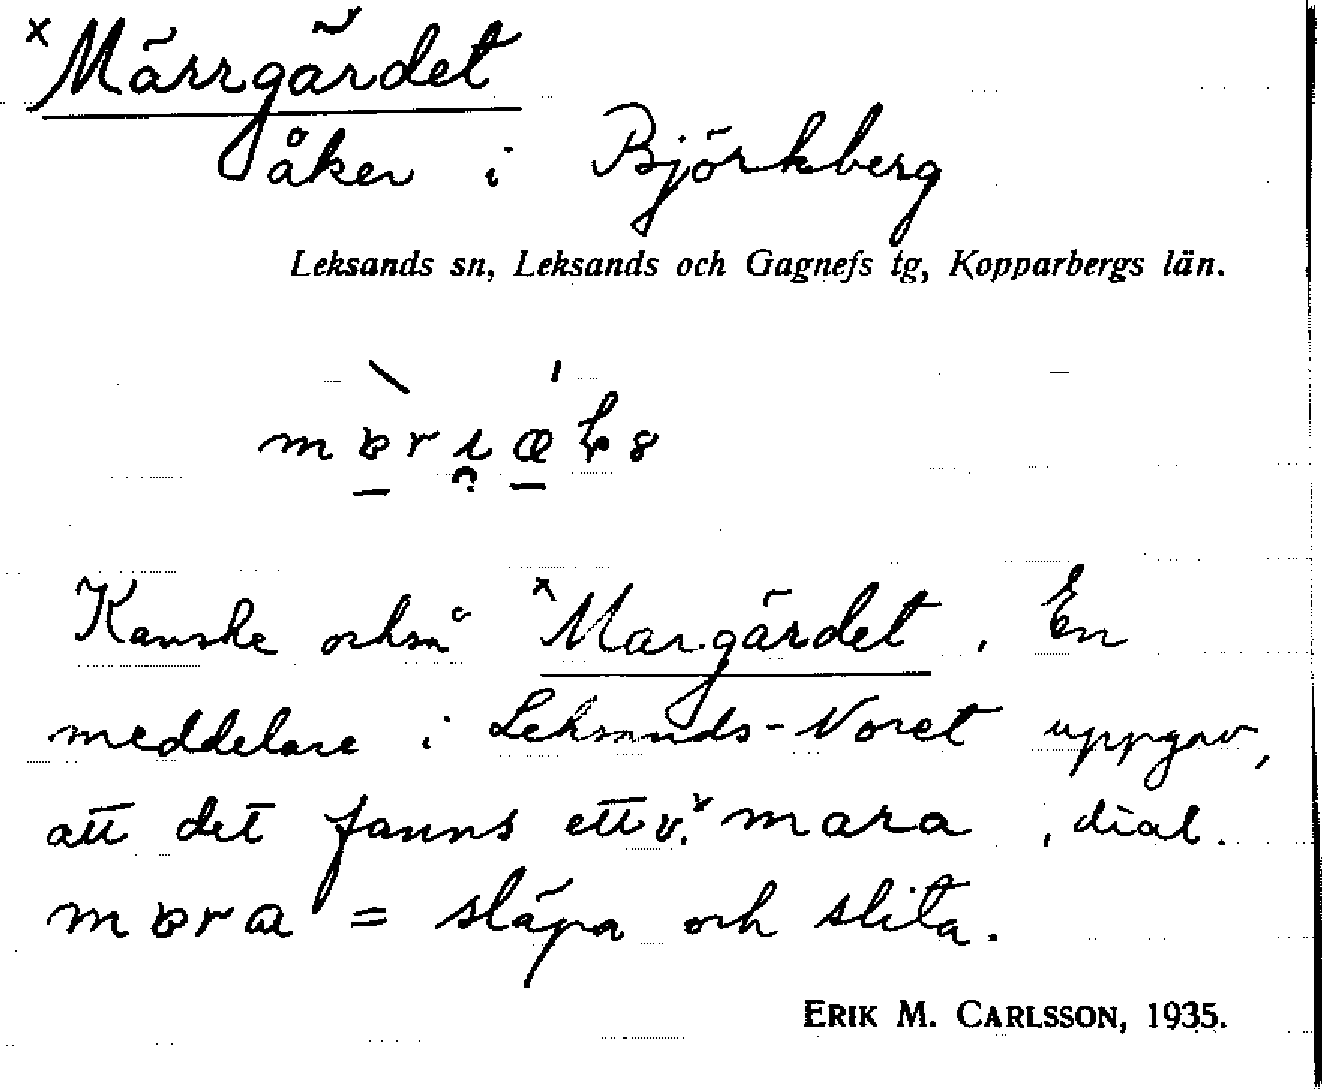 ×Märrgärdet
åker i Björkberg
Leksands sn, Leksands och Gagnefs tg, Kopparbergs län.
Kanske också ×Margärdet. En
meddelare i Leksands-Noret uppgav,
att det fanns ett v. mara, dial.
mɒra = släpa och slita.
ERIK M. CARLSSON, 1935.